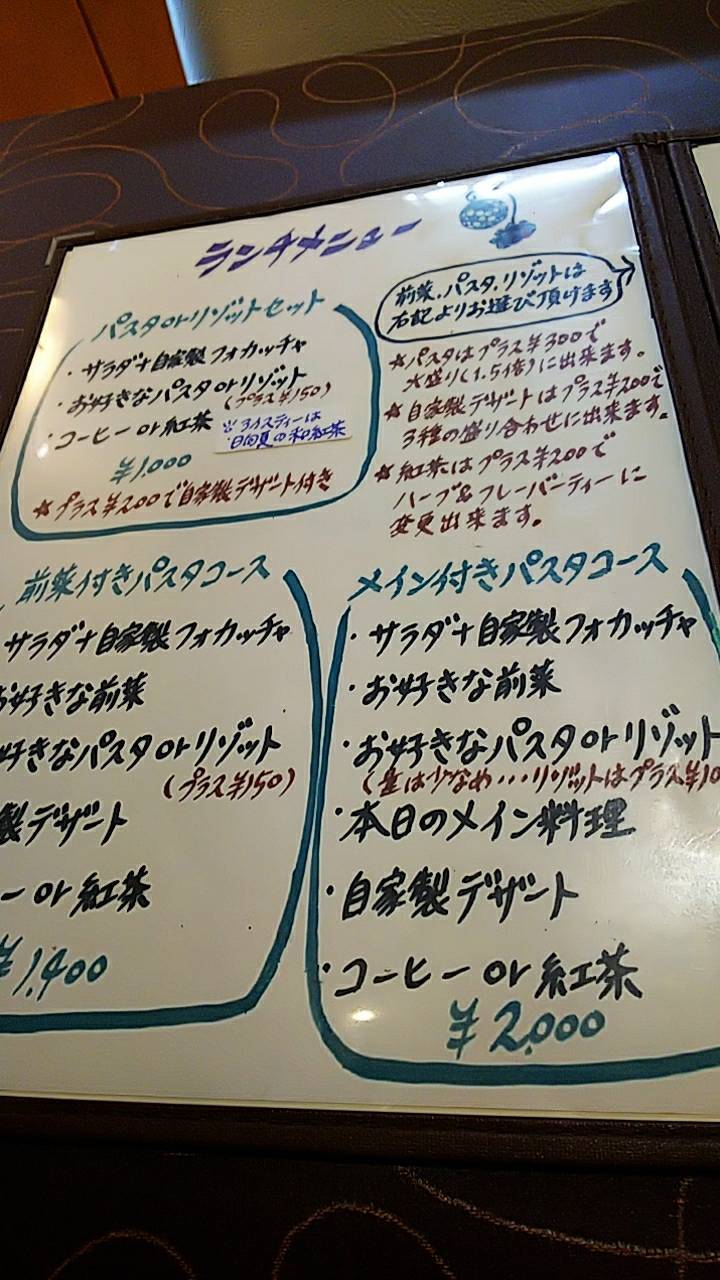 ランチメニュー
前菜、パスタ、リゾットは
右記よりお選び頂けます
パスタorリゾットセット
・サラダ+自家製フォカッチャ
・お好きなパスタorリゾット
(プラス¥150)
・コーヒーor紅茶
※アイスティーは
日向夏の和紅茶
¥1,000
☆プラス¥200で自家製デザート付き
☆パスタはプラス¥300で
大盛り(1.5倍)に出来ます。
☆自家製デザートはプラス¥200で
3種の盛り合わせに出来ます。
☆紅茶はプラス¥200で
ハーブ&フレーバーティーに
変更出来ます。
前菜付きパスタコース
サラダ+自家製フォカッチャ
お好きな前菜
好きなパスタorリゾット
(プラス¥150)
製デザート
ーor紅茶
¥1,400
メイン付きパスタコース
・サラダ+自家製フォカッチャ
・お好きな前菜
・お好きなパスタorリゾット
(量は少なめ・・・リゾットはプラス¥10
・本日のメイン料理
・自家製デザート
・コーヒーor紅茶
¥2,000